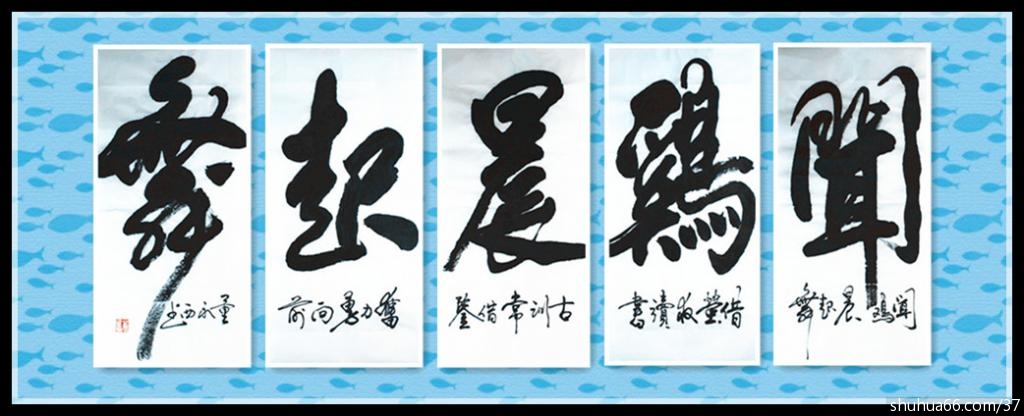 聞鷄晨起舞
聞鷄晨起舞
借螢讀書
古訓常借鑒
奮力勇向前
永西
shuhua66.com/37